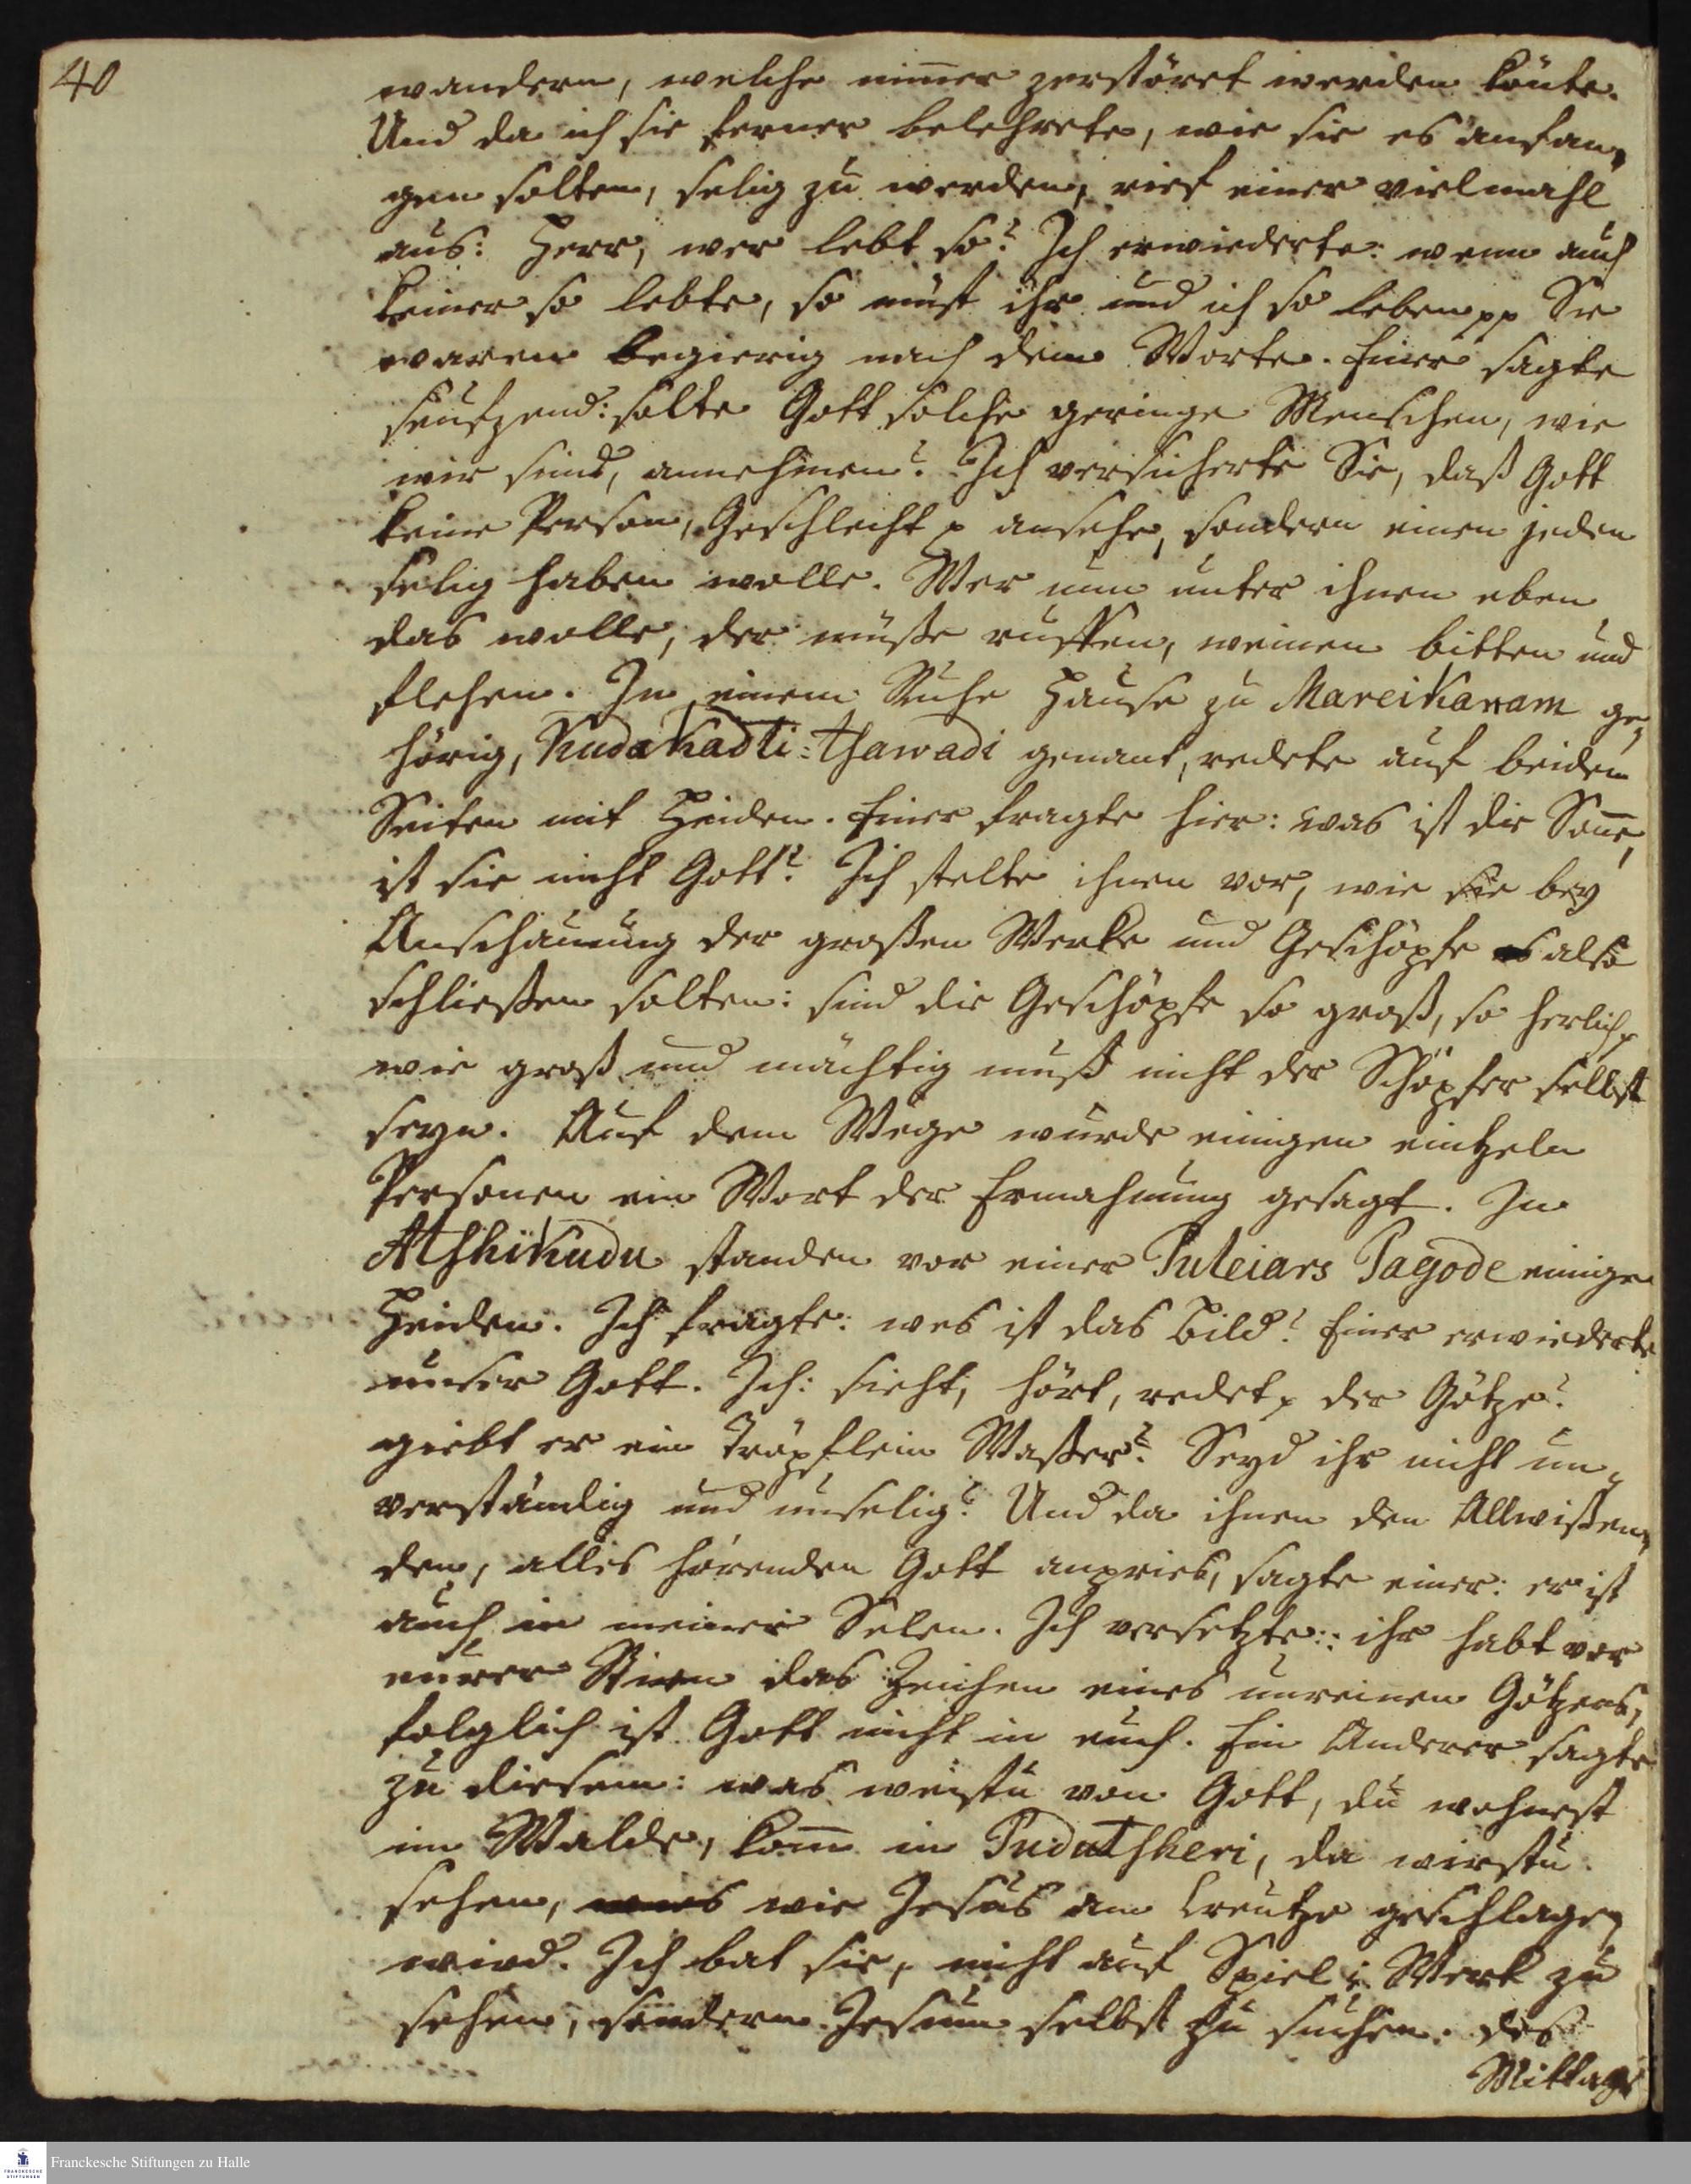 40
wandern, welche nim̄er zerstöret werden könte.
Und da ich sie ferner belehrete, wie sie es anfan-
gen solten, selig zu werden, rief einer vielmahl
aus: Herr, wer lebt so? Ich erwiederte: wenn auch
keiner so lebte, so müst ihr und ich so leben pp Sie
waren begierig nach dem Worte. Einer sagte
seufzend: solte Gott solche geringe Menschen, wie
wir sind, annehmen? Ich versicherte Sie, daß Gott
keine Person, Geschlecht p ansehe, sondern einen jeden
selig haben wolle. Wer nun unter ihnen eben
das wolle, der müße ruffen, weinen bitten und
flehen. In einem Ruhe Hause zu Mareikanam ge-
hörig, Kudakadti-tschawadi genant, redete auf beiden
Seiten mit Heiden. Einer fragte hier: was ist die Son̄e,
ist sie nicht Gott? Ich stelte ihnen vor, wie sie bey
Anschauung der großen Werke und Geschöpfe also
schließen solten: sind die Geschöpfe so groß, so herlich p
wie groß und mächtig muß nicht der Schöpfer selbst
seyn. Auf dem Wege wurde einigen eintzeln
Personen ein Wort der Ermahnung gesagt. In
Atshikudu standen vor einer Puleiars Pagode einige
Heiden. Ich fragte: wes ist das Bild? Einer erwiederte
unser Gott. Ich: sieht, hört, redet p der Götze?
giebt er ein Tröpflein Waßer? Seyd ihr nicht un-
verständig und unselig? Und da ihnen den Allwißen-
den, alles hörenden Gott anpries, sagte einer: er ist
auch in meiner Selen. Ich versetzte: ihr habt vor
eurer Stirn das Zeichen eines unreinen Götzens,
folglich ist Gott nicht in euch. Ein Anderer sagte
zu diesem: was weistu von Gott, du wohnest
im Walde, kom̄ in Pudutsheri, da wirstu
sehen, was wie Jesus am Creutze geschlagen
wird. Ich bat sie, nicht auf Spiel Werk zu
sehen, sondern Jesum selbst zu suchen. des
Mittags
FRANCKESCHE STIFTUNGEN
Franckesche Stiftungen zu Halle